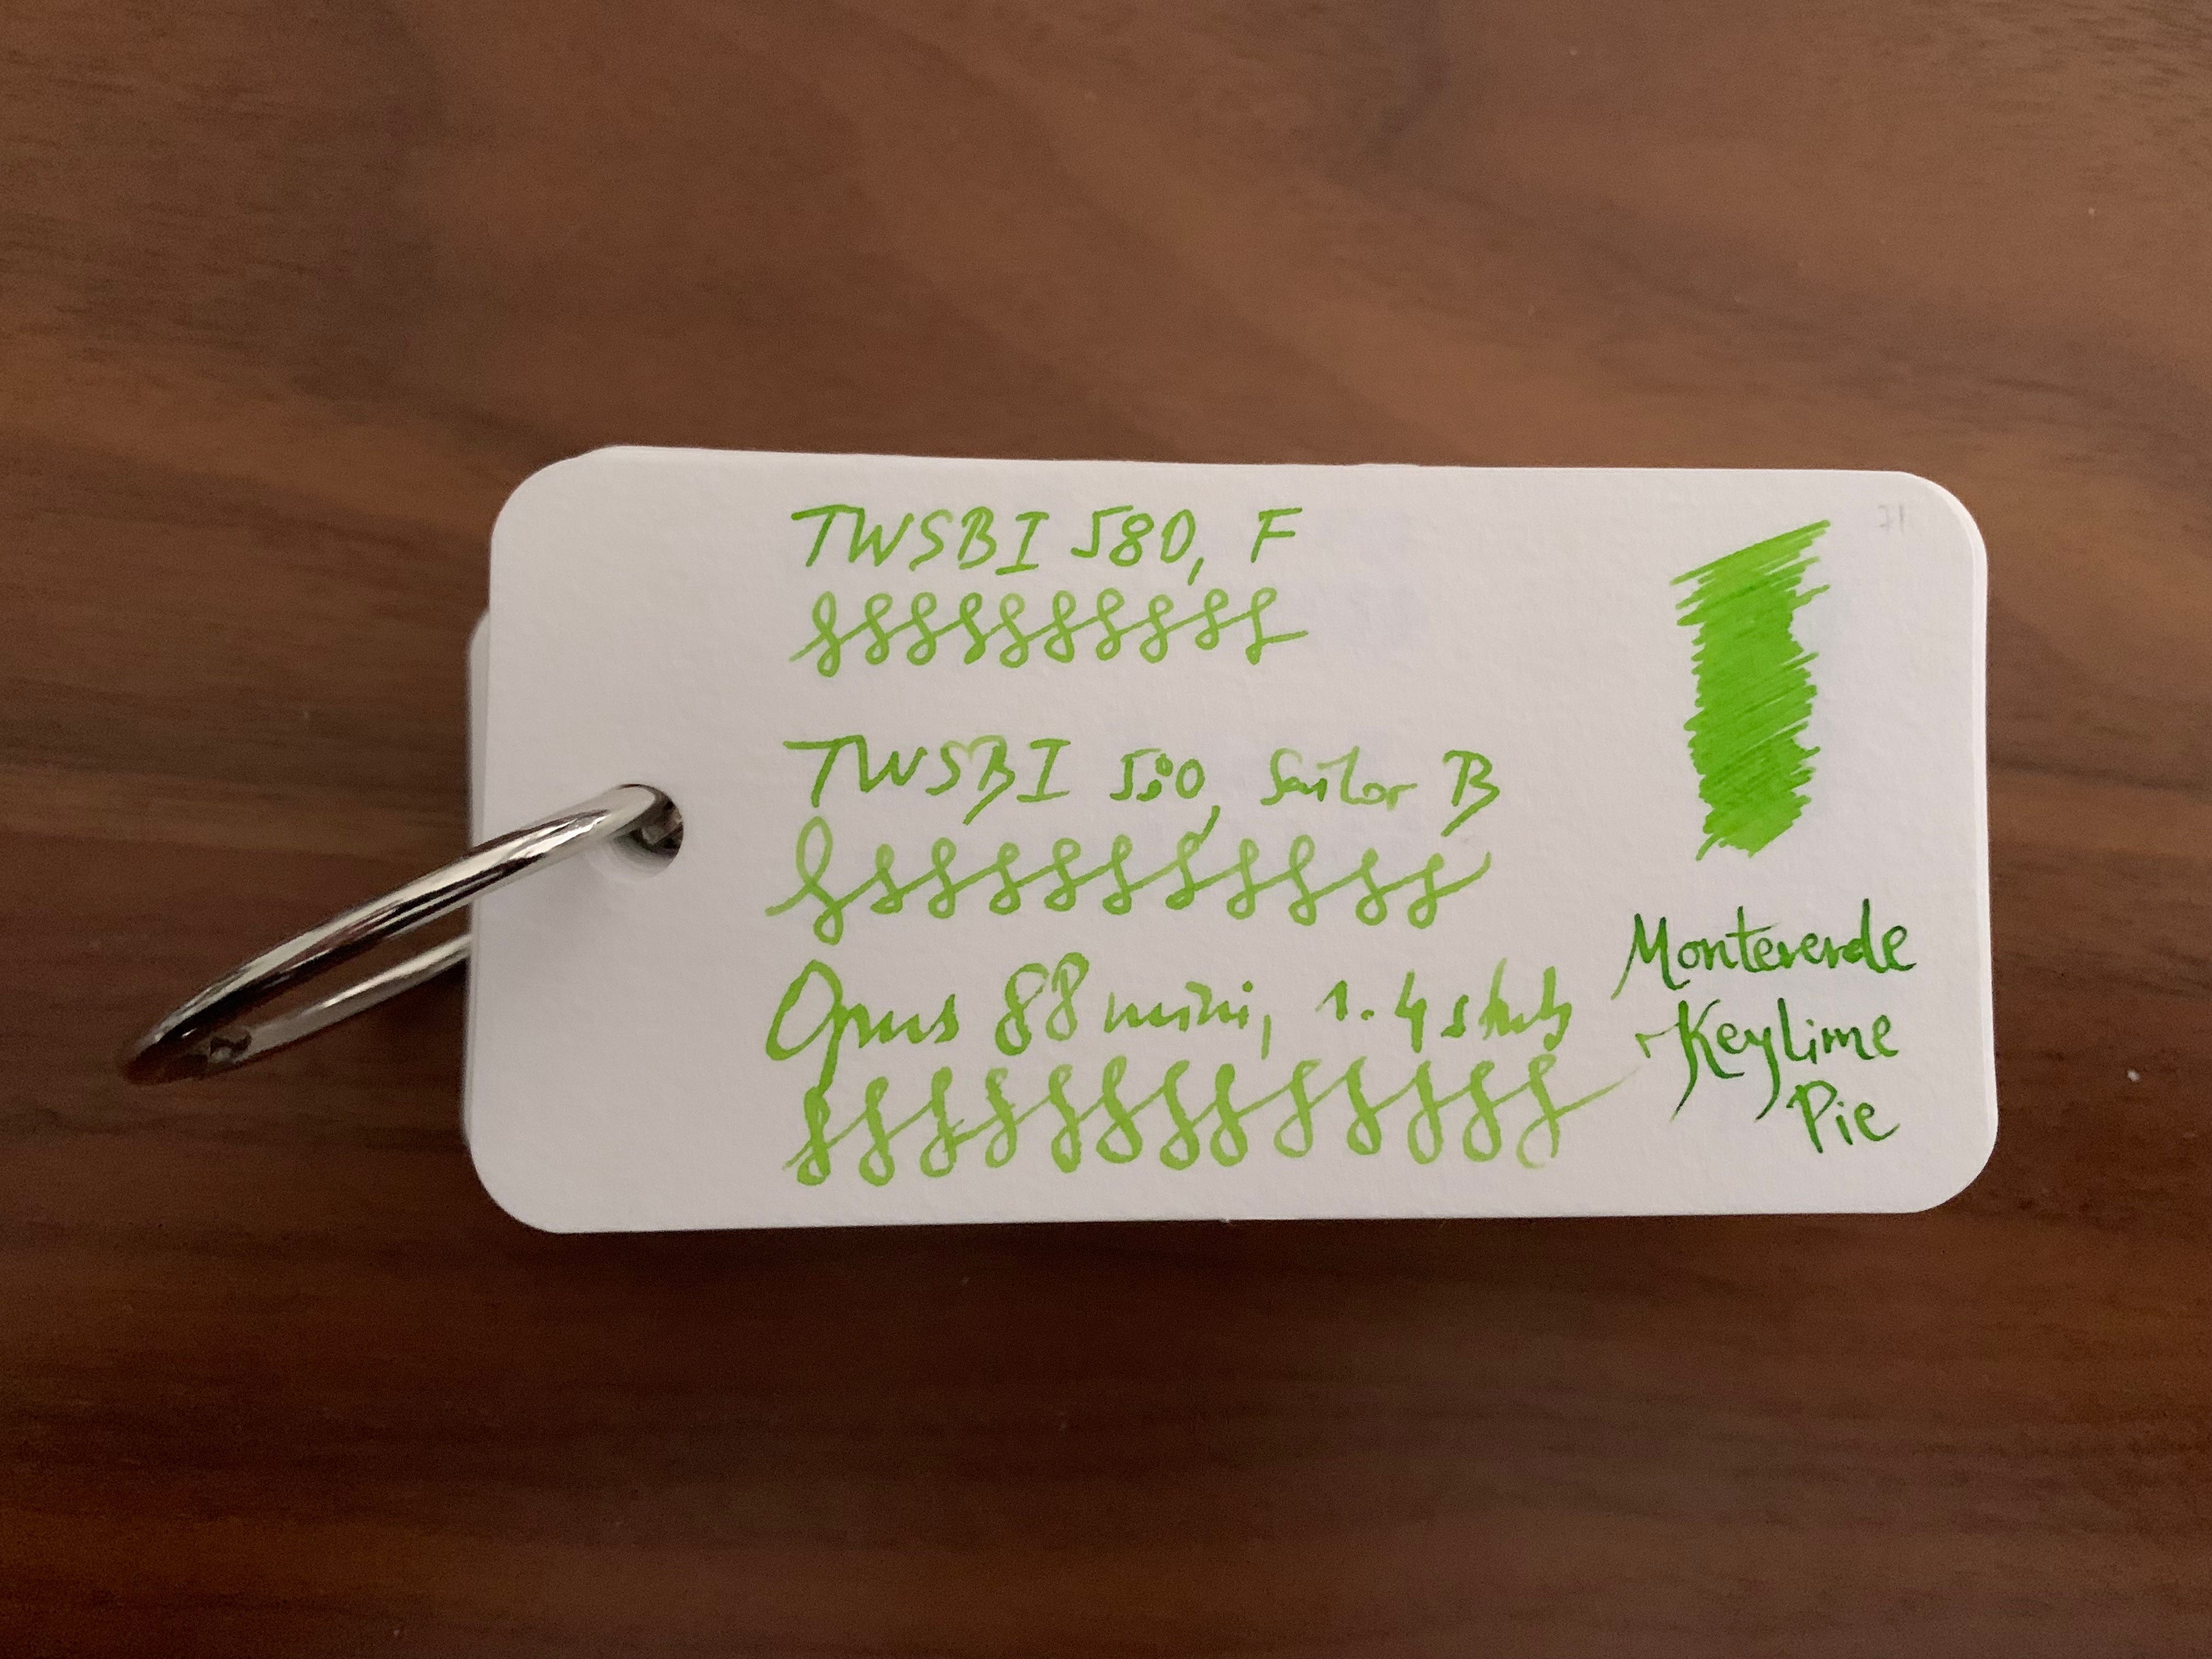 TWSBI 580, F
TWSBI 580, Sailor B
Opus 88 mini, 1.4 stub
Monteverde
Keylime
Pie